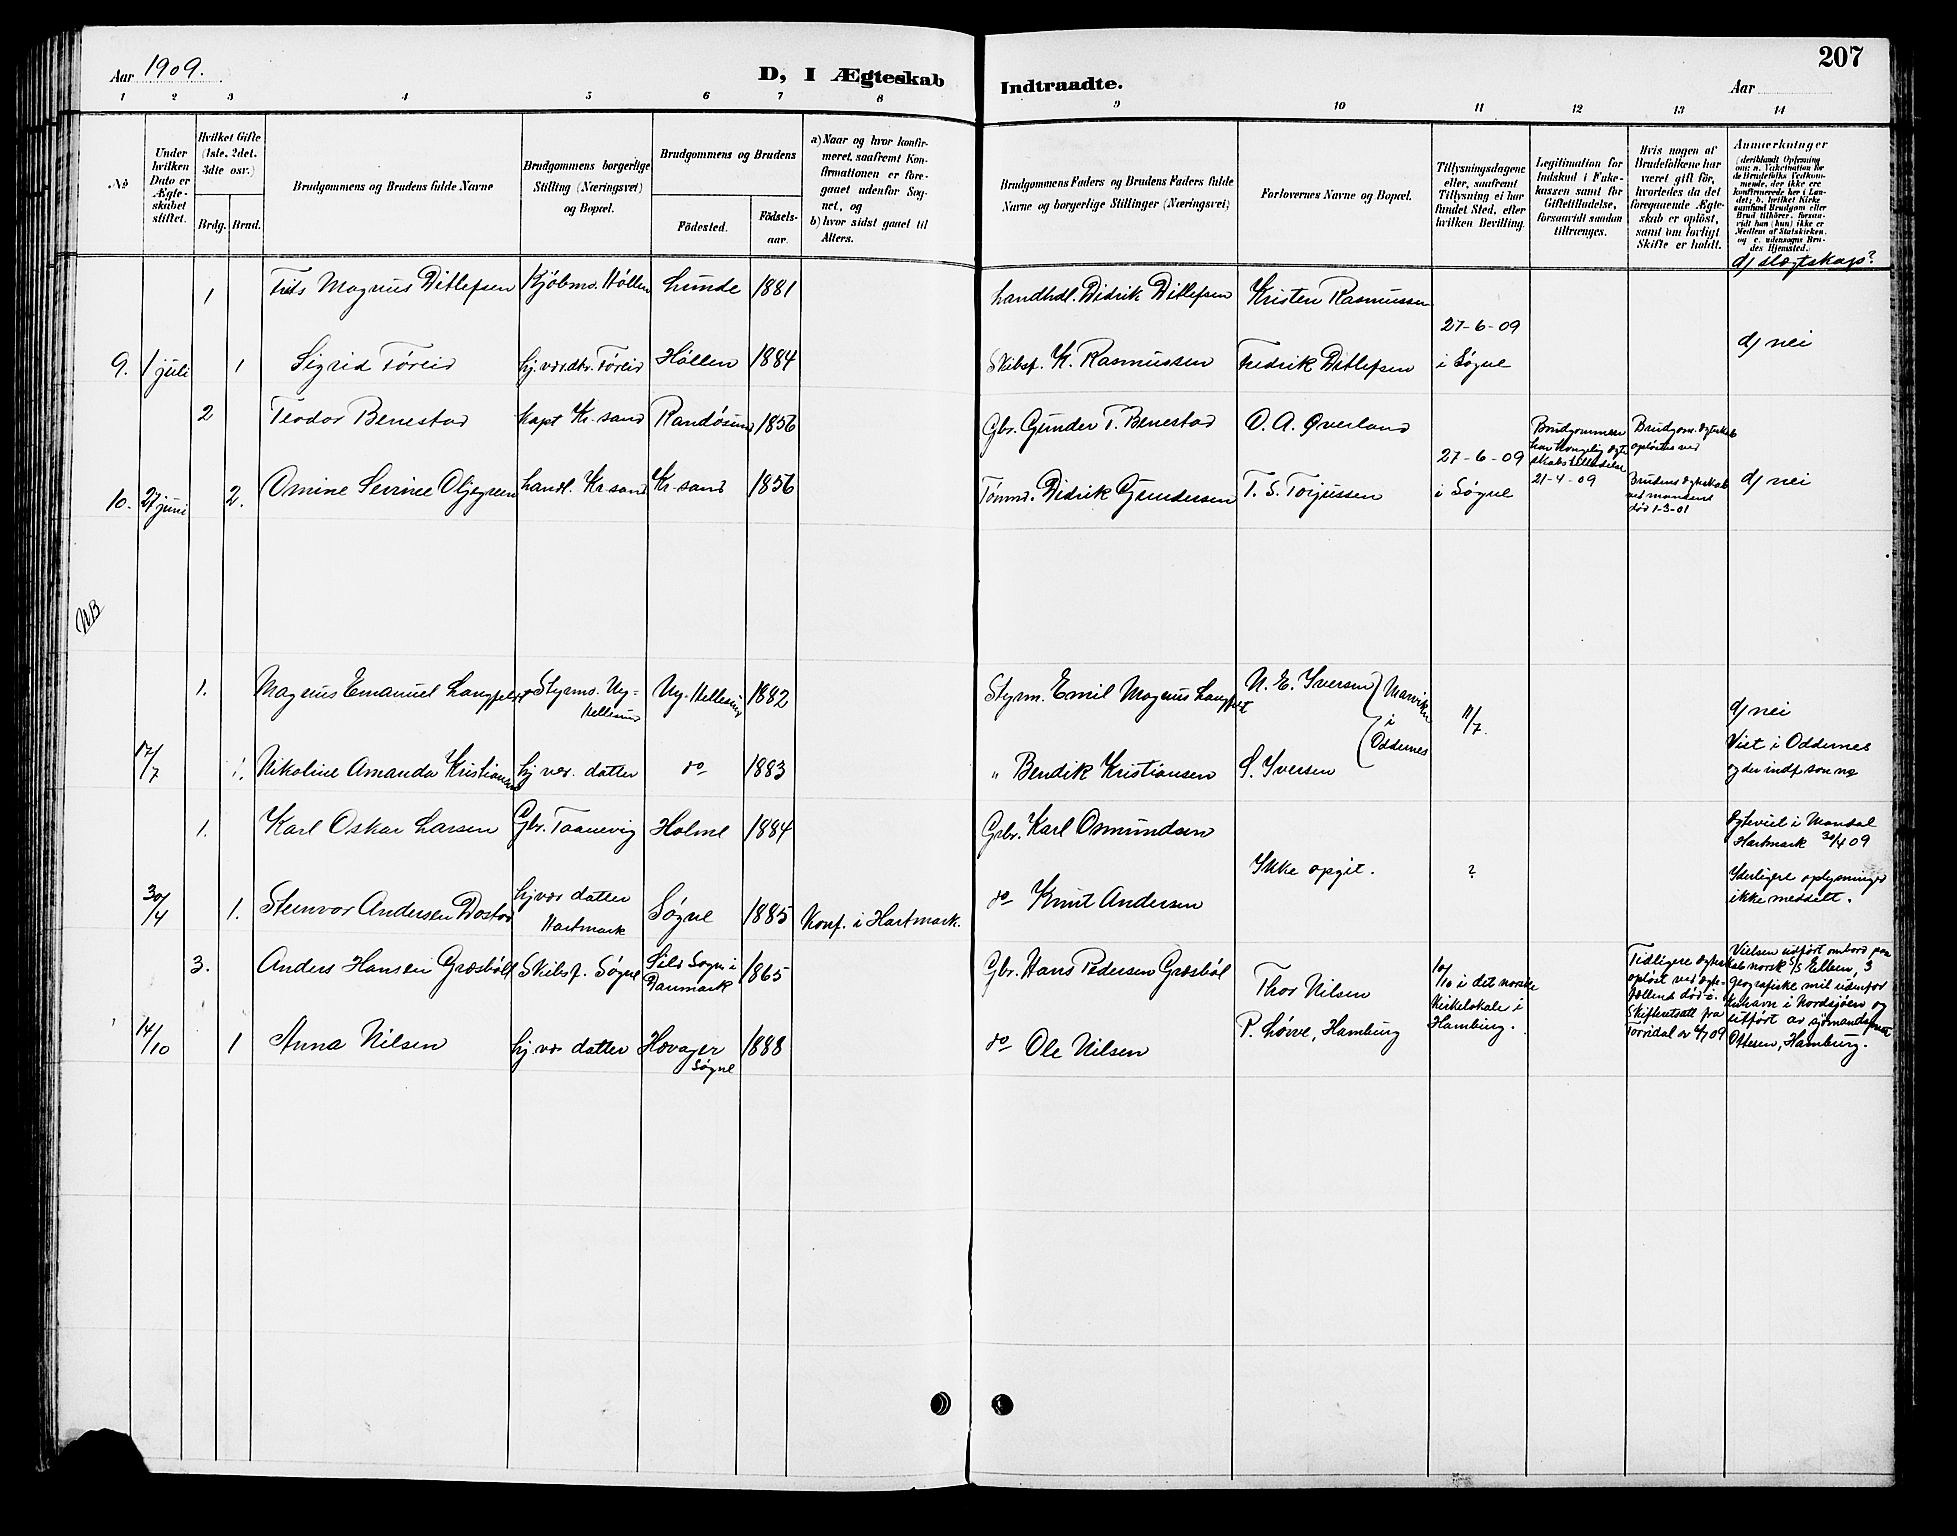 Aar 1909.
D, I Ægteskab
Indtraadte.
207
Aar
1 2 3 4 5 6 7 8 9 10 11 12 13 14
No
Under hvilken Dato er Ægteskabet stiftet.
Hvilket Gifte (1ste, 2det, 3dte osv.)
Brdg. Brud.
Brudgommens og Brudens fulde Navne
Brudgommens borgerlige Stilling (Næringsvei) og Bopæl.
Brudgommens og Brudens
Födested.
Födselsaar.
a) Naar og hvor konfirmeret, saafremt Konfirmationen er foregaaet udenfor Sognet, og
b) hvor sidst gaaet til Alters.
Brudgommens Faders og Brudens Faders fulde Navne og borgerlige Stillinger (Næringsvei)
Forlovernes Navne og Bopæl.
Tillysningsdagene eller, saafremt Tillysning ei har fundet Sted, efter hvilken Bevilling.
Legitimation for Indskud i Enkekassen samt for Giftetilladelse, forsaavidt saadan tiltrænges.
Hvis nogen af Brudefolkene har været gift för, hvorledes da det foregaaende Ægteskab er oplöst, samt om lovligt Skifte er holdt.
Anmærkninger
d/ slægtskap?
1 Frits Magnus Ditlefsen Kjöbmd. Höllen Lunde 1881 Landhdl. Didrik Ditlefsen Kristen Rasmussen
27-6-09
9. 1 juli 1 Sigrid Föreid hj.vær.dtr. Föreid Höllen 1884 Skibsf. K. Rasmussen Fredrik Ditlefsen i Søgne d/ nei
2 Teodor Benestad Kapt Kr.sand Randösund 1856 Gbr. Gunder T. Benestad O. A. Øverland
27-6-09
Brudgommen har kongelig egteskabstilladelse 21-4-09
Brudgom. egteskab opløstes ved
10. 27 juni 2. Omine Sevrine Oljegren handl. Kr.sand Kr.sand 1856 Tömmd. Didrik Gundersen T. S. Torjussen i Søgne
Brudens egteskab ved mandens död 1-3-01
d/ nei
NB
1. Magnus Emanuel Langfeldt Styrmd. Ny-Hellesund Ny-Hellesund 1882 Styrm. Emil Magnus Langfelt N. E. Iversen
11/7.
d/ nei
17/7 1. Nikoline Amanda Kristiansen hj vær. datter do 1883 " Bendik Kristiansen S. Iversen
i Oddernes
Viet i Oddernes
og der indf. som no
1. Karl Oskar Larsen Gbr. Taanevig Holme 1884 Gbr. Karl Osmundsen
Ikke opgit. ?
Egteviet i Mandal
Hartmark 30/4 09
30/4 1. Steinvor Andersen Dostad hj vær datter Hartmark Søgne 1885 Konf. i Hartmark. do Knut Andersen
Yderligere oplysninger
ikke meddelt.
3. Anders Hansen Græsböll Skibsf. Søgne Sogn i Danmark 1865 Gbr. Hans Pedersen Græsböl
Thor Nilsen
10/10 i det norske kirkelokale i Hamburg.
Tidligere egteskab opløst ved egtefællens død
Skifteattest fra Torridal
Vielsen udført ombord paa norsk S/S Elben, 3 geografiske mil udenfor i Nordsjøen og utført av sjømandsprest Ottesen, Hamburg.
14/10 1 Anna Nilsen hj vær datter Høvager Søgne 1888 do Ole Nilsen P. Lövve, Hamburg